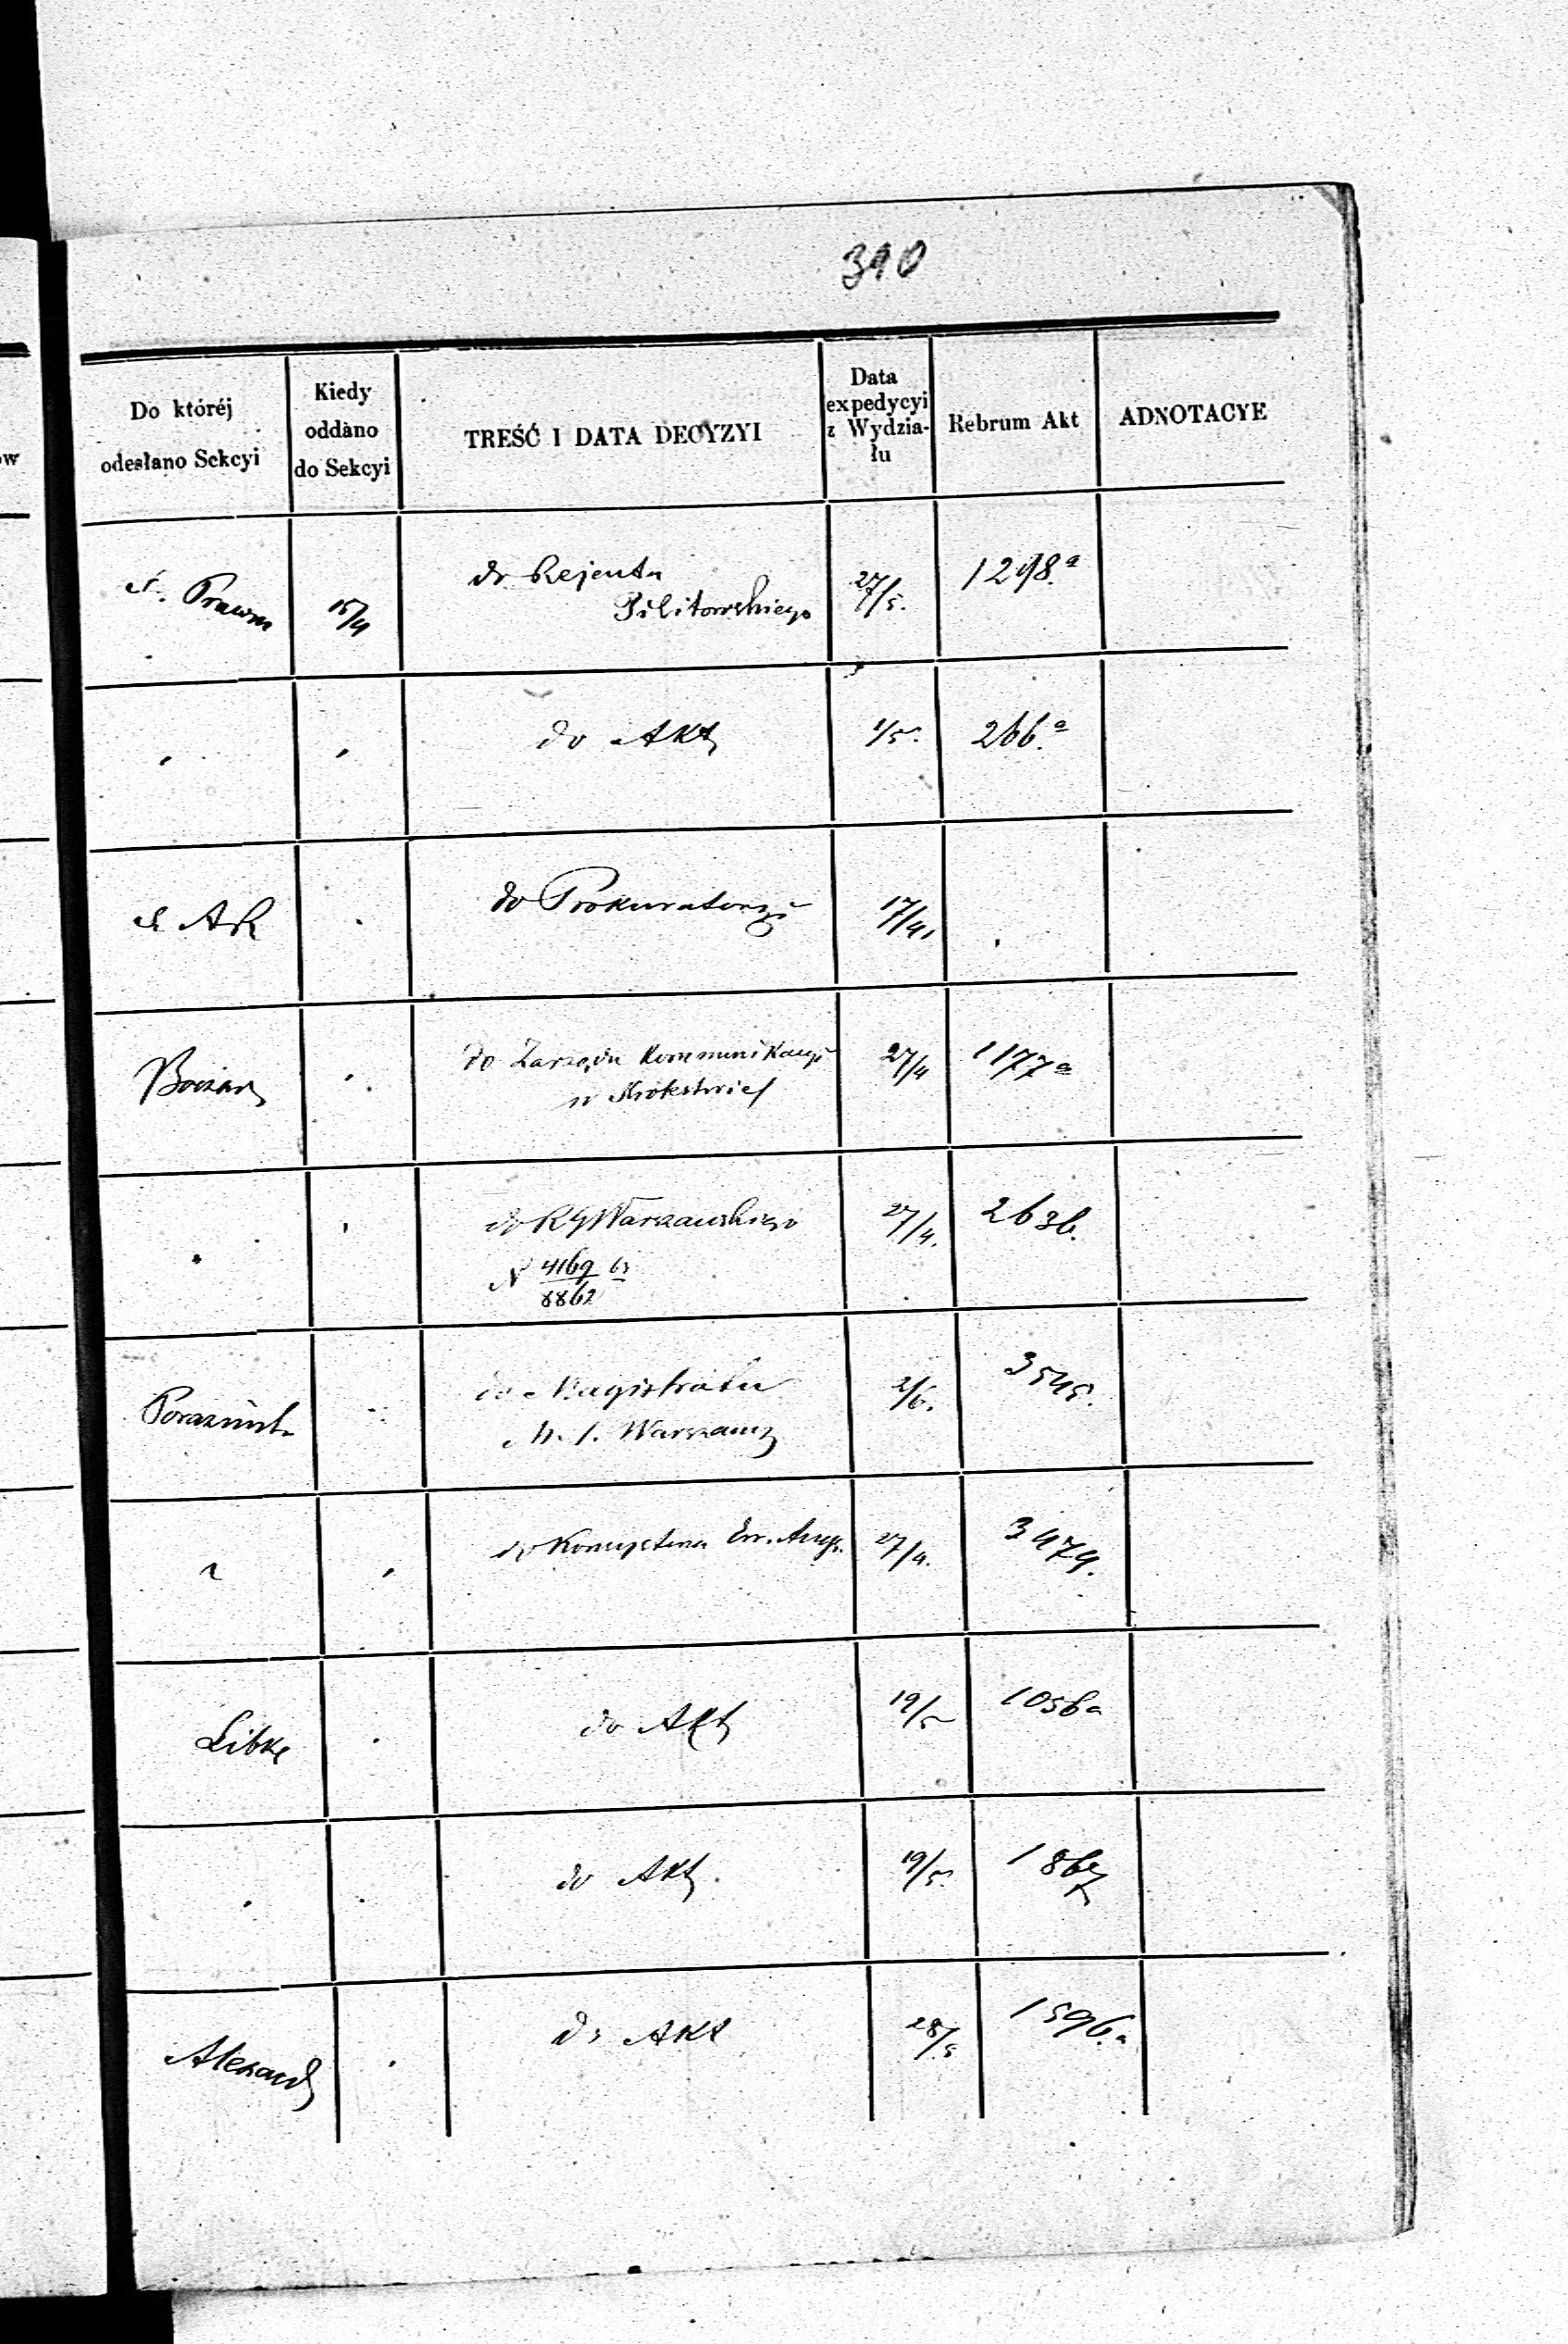 390
Do któréj
odesłano Sekcyi
Kiedy
oddano
do Sekcyi
TREŚĆ I DATA DECYZYI
Data
expedycyi
z Wydzia-
łu
Rebrum Akt
ADNOTACYE
ow
S. Prawn
15/4
do Rejenta
Pilitowskiego
27/5.
1298.a
do Akt
1/5.
266.a
do Prokuratoryi
17/4
do Zarządu Kommunikacyi
w Królestwie
27/4
1177a
do RGWarszawskiego
N 4169 63
8862
27/4.
263b.
do Magistratu
M. S. Warszawy
2/6.
3545.
27/4.
3474.
Libke
do Akt
19/5
1056a
do Akt.
19/5
186
Alexand
do Akt
28/5
1596.a